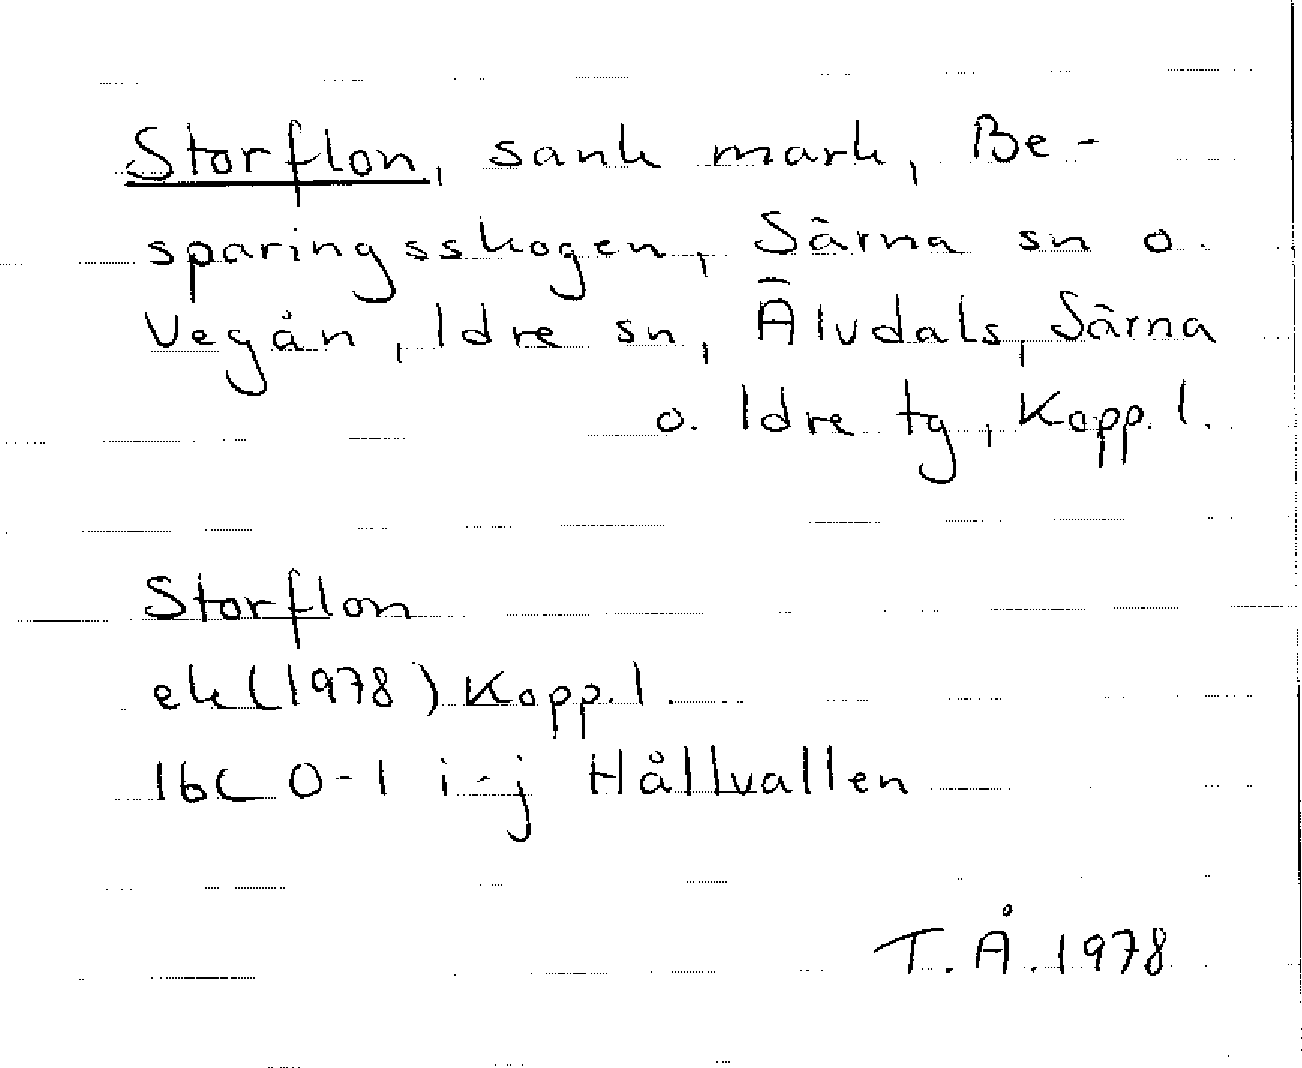 Storflon, sank mark, Be-
sparingsskogen, Särna sn o.
Vegån, Idre sn, Älvdals, Särna
o. Idre tg, Kopp. l.
Storflon
ek (1978) Kopp. l
16C 0-1 i-j Hållvallen
T. Å. 1978